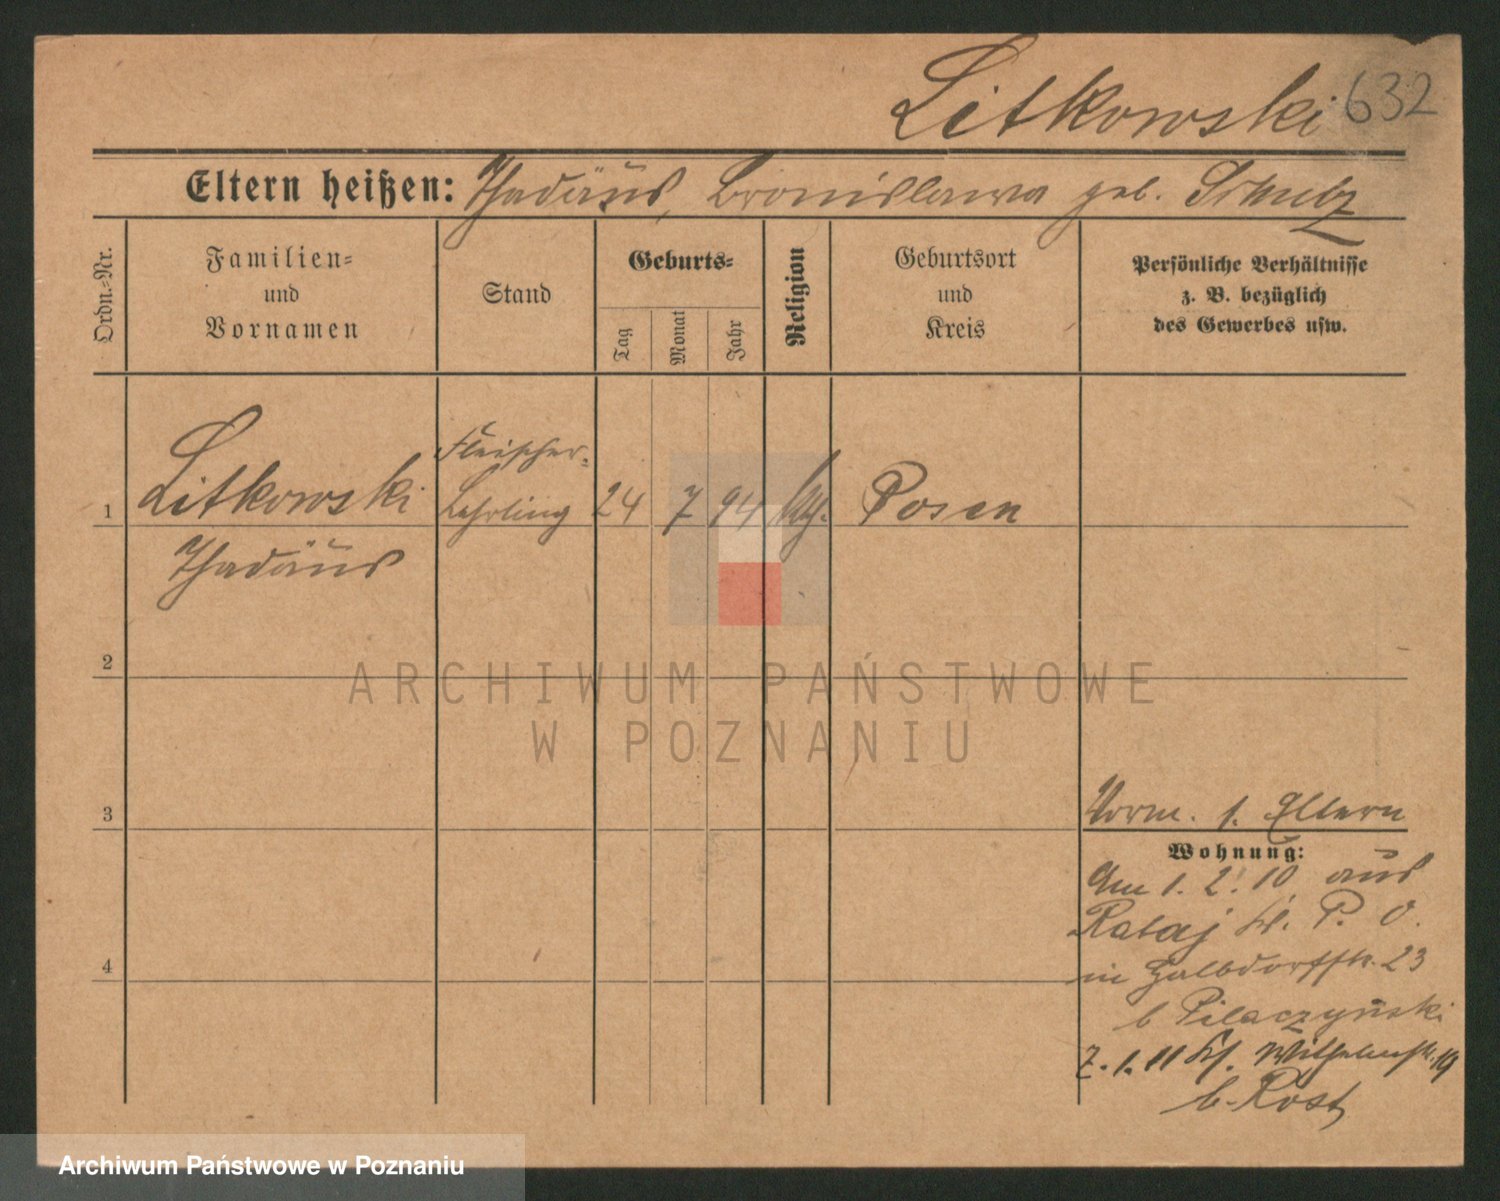 Litkowski 632
Eltern heißen: Thadäus, Bronislawa geb. Schulz
Ordn.=Nr.
Familien=
und
Vornamen
Stand
Geburts=
Tag
Monat
Jahr
Religion
Geburtsort
und
Kreis
Persönliche Verhältnisse
z. B. bezüglich
des Gewerbes usw.
Fleischer-
1 Litkowski Lehrling 24 7 94 kth. Posen
Thadäus
2
ARCHIWUM PAŃSTWOWE
W POZNANIU
3
Vorm. s. Eltern
Wohnung:
Am 1. 2. 10 aus
Rataj Kr. P. O.
4
in Halbdorfstr. 23
b Pilaczyński
7. 1. 11 Wilhelmstr. 19
b. Rost
Archiwum Państwowe w Poznaniu